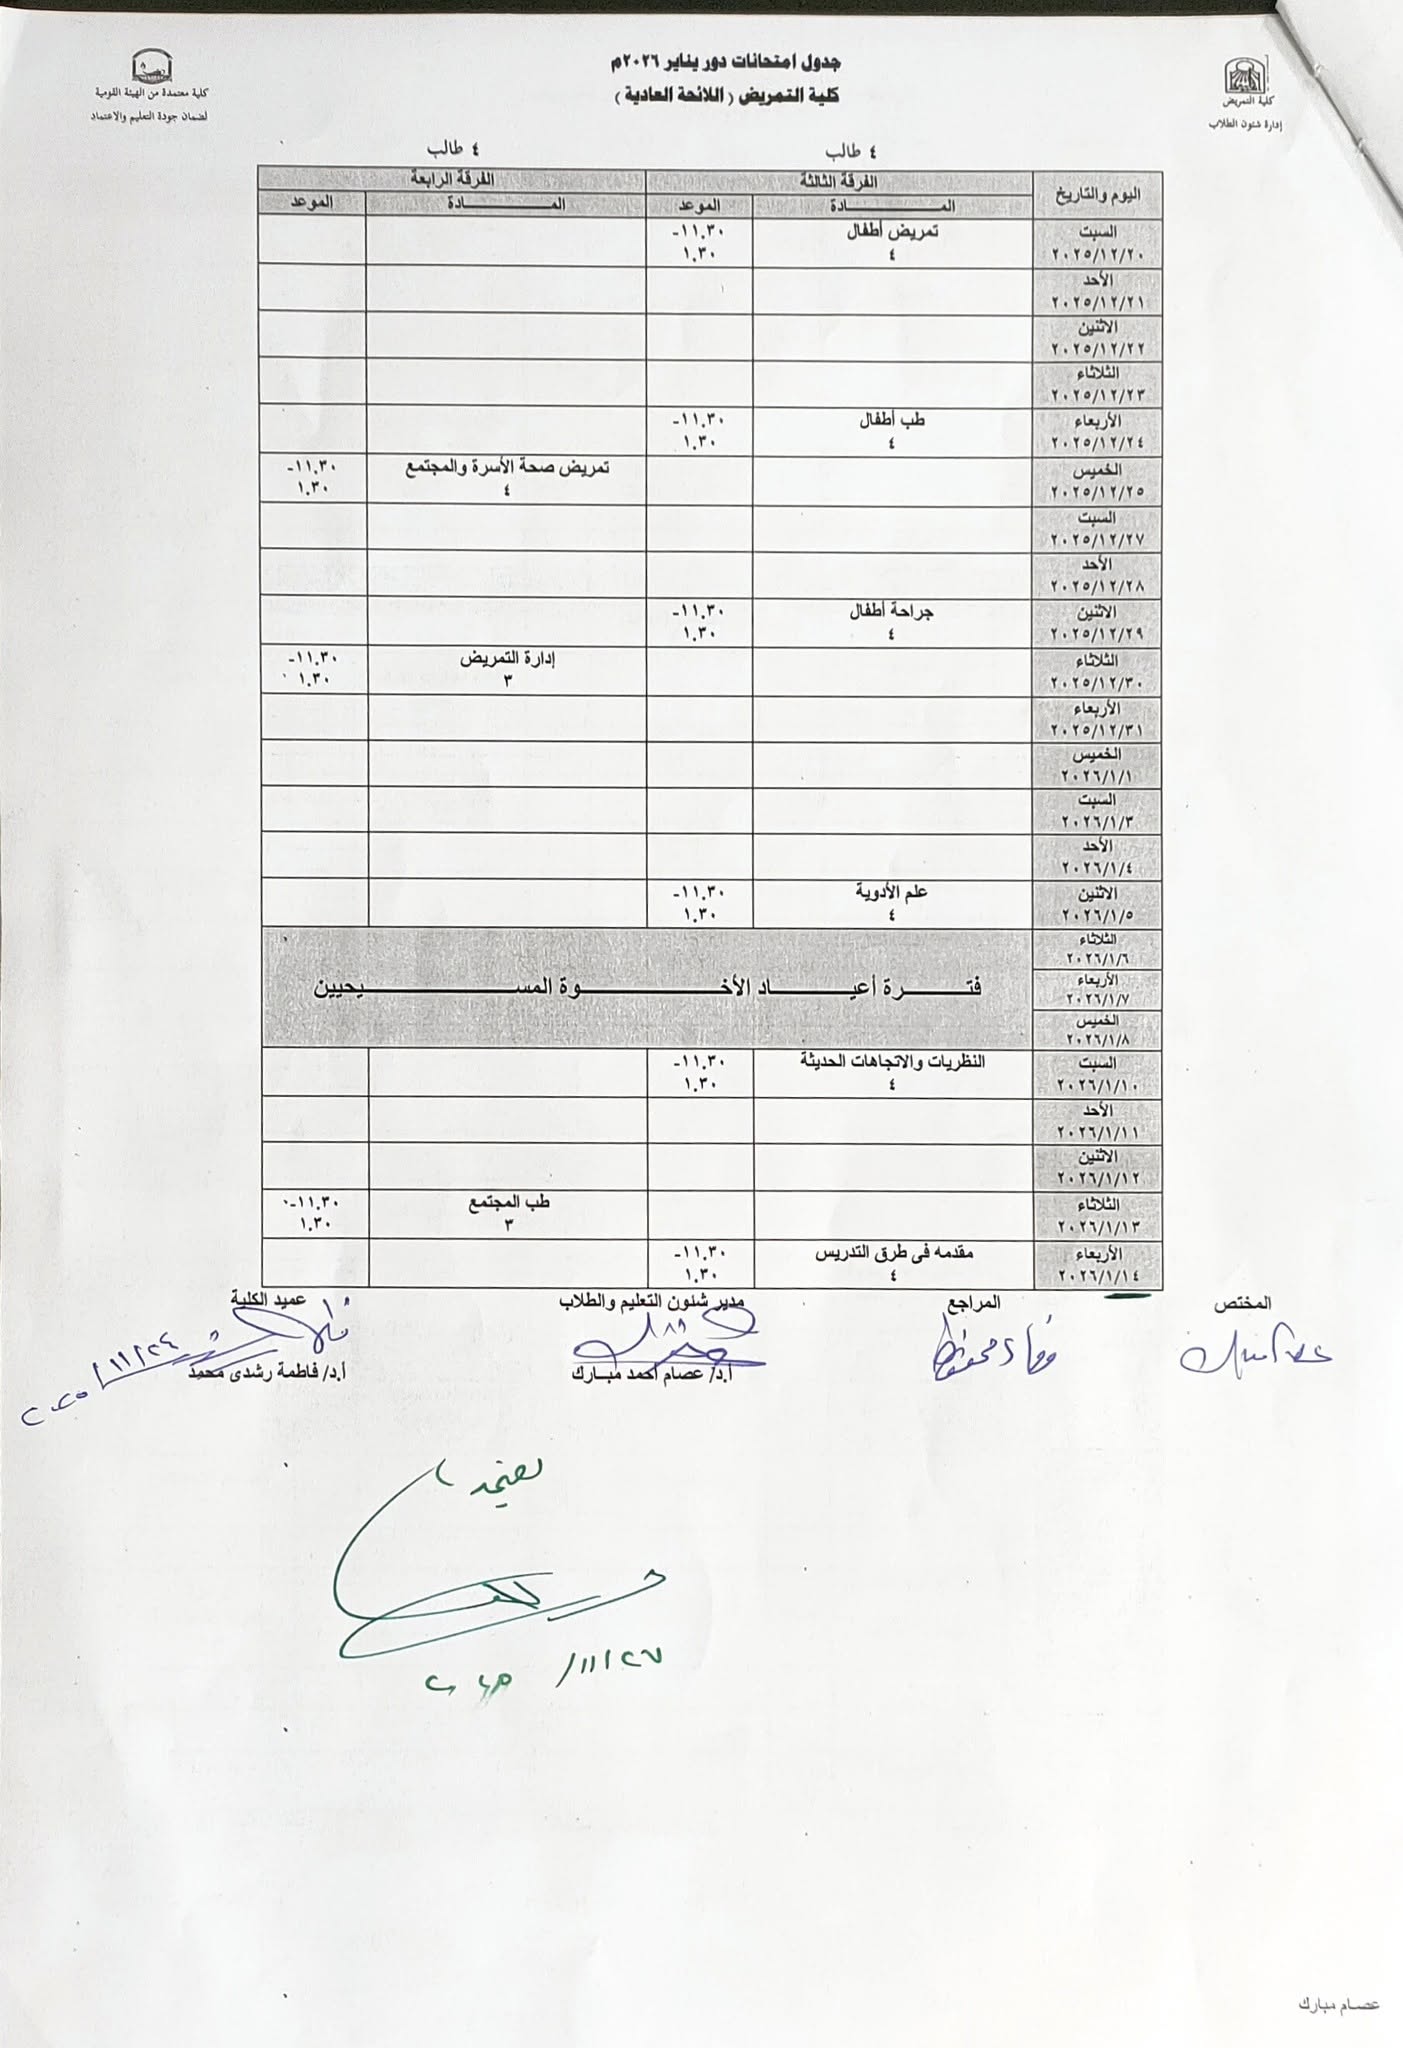 جدول امتحانات دور يناير ٢٠٢٦م
كلية التمريض ( اللائحة العادية )
كلية التمريض
إدارة شئون الطلاب
كلية معتمدة من الهيئة القومية
لضمان جودة التعليم والاعتماد
٤ طالب
٤ طالب
اليوم والتاريخ الفرقة الثالثة الفرقة الرابعة
المـــــــــادة الموعد المـــــــــادة الموعد
السبت تمريض أطفال ١١.٣٠-
٢٠٢٥/١٢/٢٠ ٤ ١.٣٠
الأحد
٢٠٢٥/١٢/٢١
الاثنين
٢٠٢٥/١٢/٢٢
الثلاثاء
٢٠٢٥/١٢/٢٣
الأربعاء طب أطفال ١١.٣٠-
٢٠٢٥/١٢/٢٤ ٤ ١.٣٠
الخميس تمريض صحة الأسرة والمجتمع ١١.٣٠-
٢٠٢٥/١٢/٢٥ ٤ ١.٣٠
السبت
٢٠٢٥/١٢/٢٧
الأحد
٢٠٢٥/١٢/٢٨
الاثنين جراحة أطفال ١١.٣٠-
٢٠٢٥/١٢/٢٩ ٤ ١.٣٠
الثلاثاء إدارة التمريض ١١.٣٠-
٢٠٢٥/١٢/٣٠ ٣ ١.٣٠
الأربعاء
٢٠٢٥/١٢/٣١
الخميس
٢٠٢٦/١/١
السبت
٢٠٢٦/١/٣
الأحد
٢٠٢٦/١/٤
الاثنين علم الأدوية ١١.٣٠-
٢٠٢٦/١/٥ ٤ ١.٣٠
الثلاثاء
٢٠٢٦/١/٦
الأربعاء
٢٠٢٦/١/٧
الخميس
٢٠٢٦/١/٨
فتـــرة أعيـــاد الأخـــوة المســـيحيين
السبت النظريات والاتجاهات الحديثة ١١.٣٠-
٢٠٢٦/١/١٠ ٤ ١.٣٠
الأحد
٢٠٢٦/١/١١
الاثنين
٢٠٢٦/١/١٢
الثلاثاء طب المجتمع ١١.٣٠-
٢٠٢٦/١/١٣ ٣ ١.٣٠
الأربعاء مقدمه فى طرق التدريس ١١.٣٠-
٢٠٢٦/١/١٤ ٤ ١.٣٠
المختص المراجع مدير شئون التعليم والطلاب عميد الكلية
أ.د/ عصام أحمد مبـارك أ.د/ فاطمة رشدى محمد
٢٠٢٥/١١/٢٤
يعتمد
٢٠٢٥ /١١/٢٧
عصام مبارك